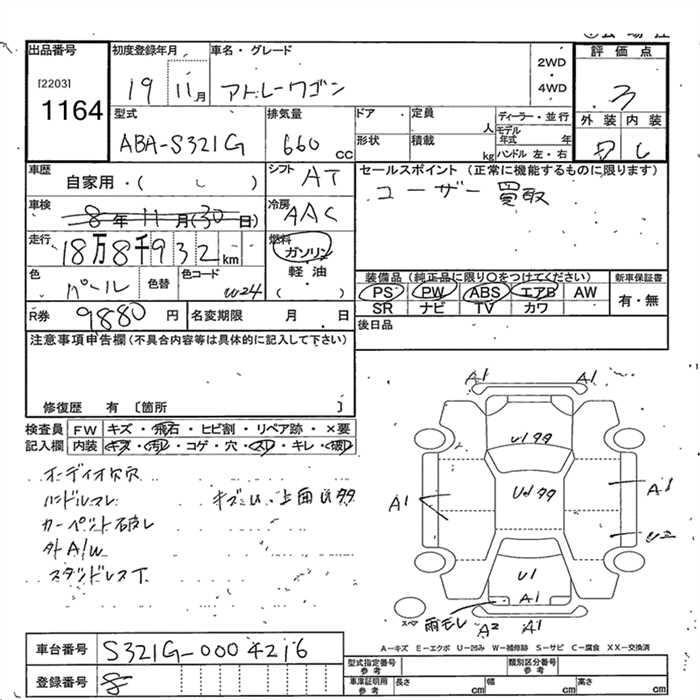 出品番号 初度登録年月 車名・グレード 評価点
[2203] 19 11月 アトレーワゴン 2WD・4WD 3
1164
型式 ABA-S321G 排気量 660cc ドア・ 定員 人 ディーラー・並行 外装 内装
形状 積載 kg モデル年式 年 ハンドル 左・右
車歴 自家用・( ) シフト AT セールスポイント (正常に機能するものに限ります)
ユーザー買取
車検 8年11月(30日) 冷房 AAC
走行 18万8千932km 燃料 ガソリン
軽油
( )
色 パール 色替 色コード W24
装備品 (純正品に限り○をつけてください) 新車保証書
PS PW ABS エアB AW 有・無
SR ナビ TV カワ
R券 9880円 名変期限 月 日 後日品
注意事項申告欄(不具合内容等は具体的に記入して下さい)
修復歴 有 〔箇所 〕
検査員 FW キズ・飛石・ヒビ割・リペア跡・×要
記入欄 内装 キズ・汚レ・コゲ・穴・スレ・キレ・破レ
オーディオ欠穴
ハンドルスレ キズU 上面Uタタ
カーペット破レ
外A/W
スタッドレスT
A1 A1
U1タタ
A1 Uタタ A1
U2
U1
A1
スペア 雨モレ A2 A1
A-キズ E-エクボ U-凹み W-補修跡 S-サビ C-腐食 XX-交換済
車台番号 S321G-0004216
登録番号
型式指定番号 参考 類別区分番号 参考
車庫証明用 参考 長さ cm 幅 cm 高さ cm